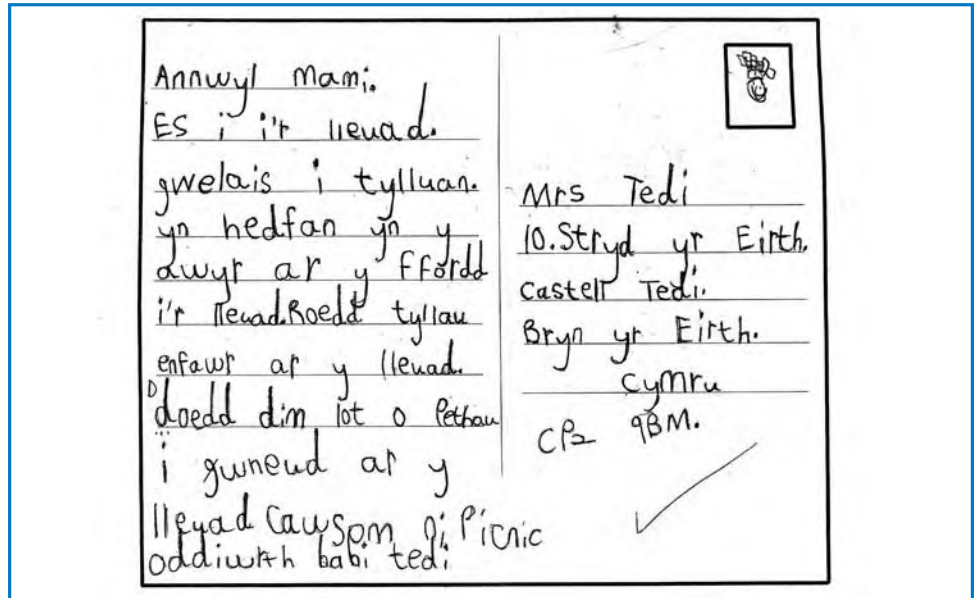 Annwyl Mami.
ES i i'r lleuad.
gwelais i tylluan.
yn hedfan yn y
awyr ar y ffordd
i'r lleuad. Roedd tyllau
enfawr ar y lleuad.
D
doedd dim lot o Pethau
i gwneud ar y
lleuad Cawsom ni Picnic
oddiwrth babi tedi
Mrs Tedi
10. Stryd yr Eirth.
Castell Tedi.
Bryn yr Eirth.
Cymru
CP2 9BM.